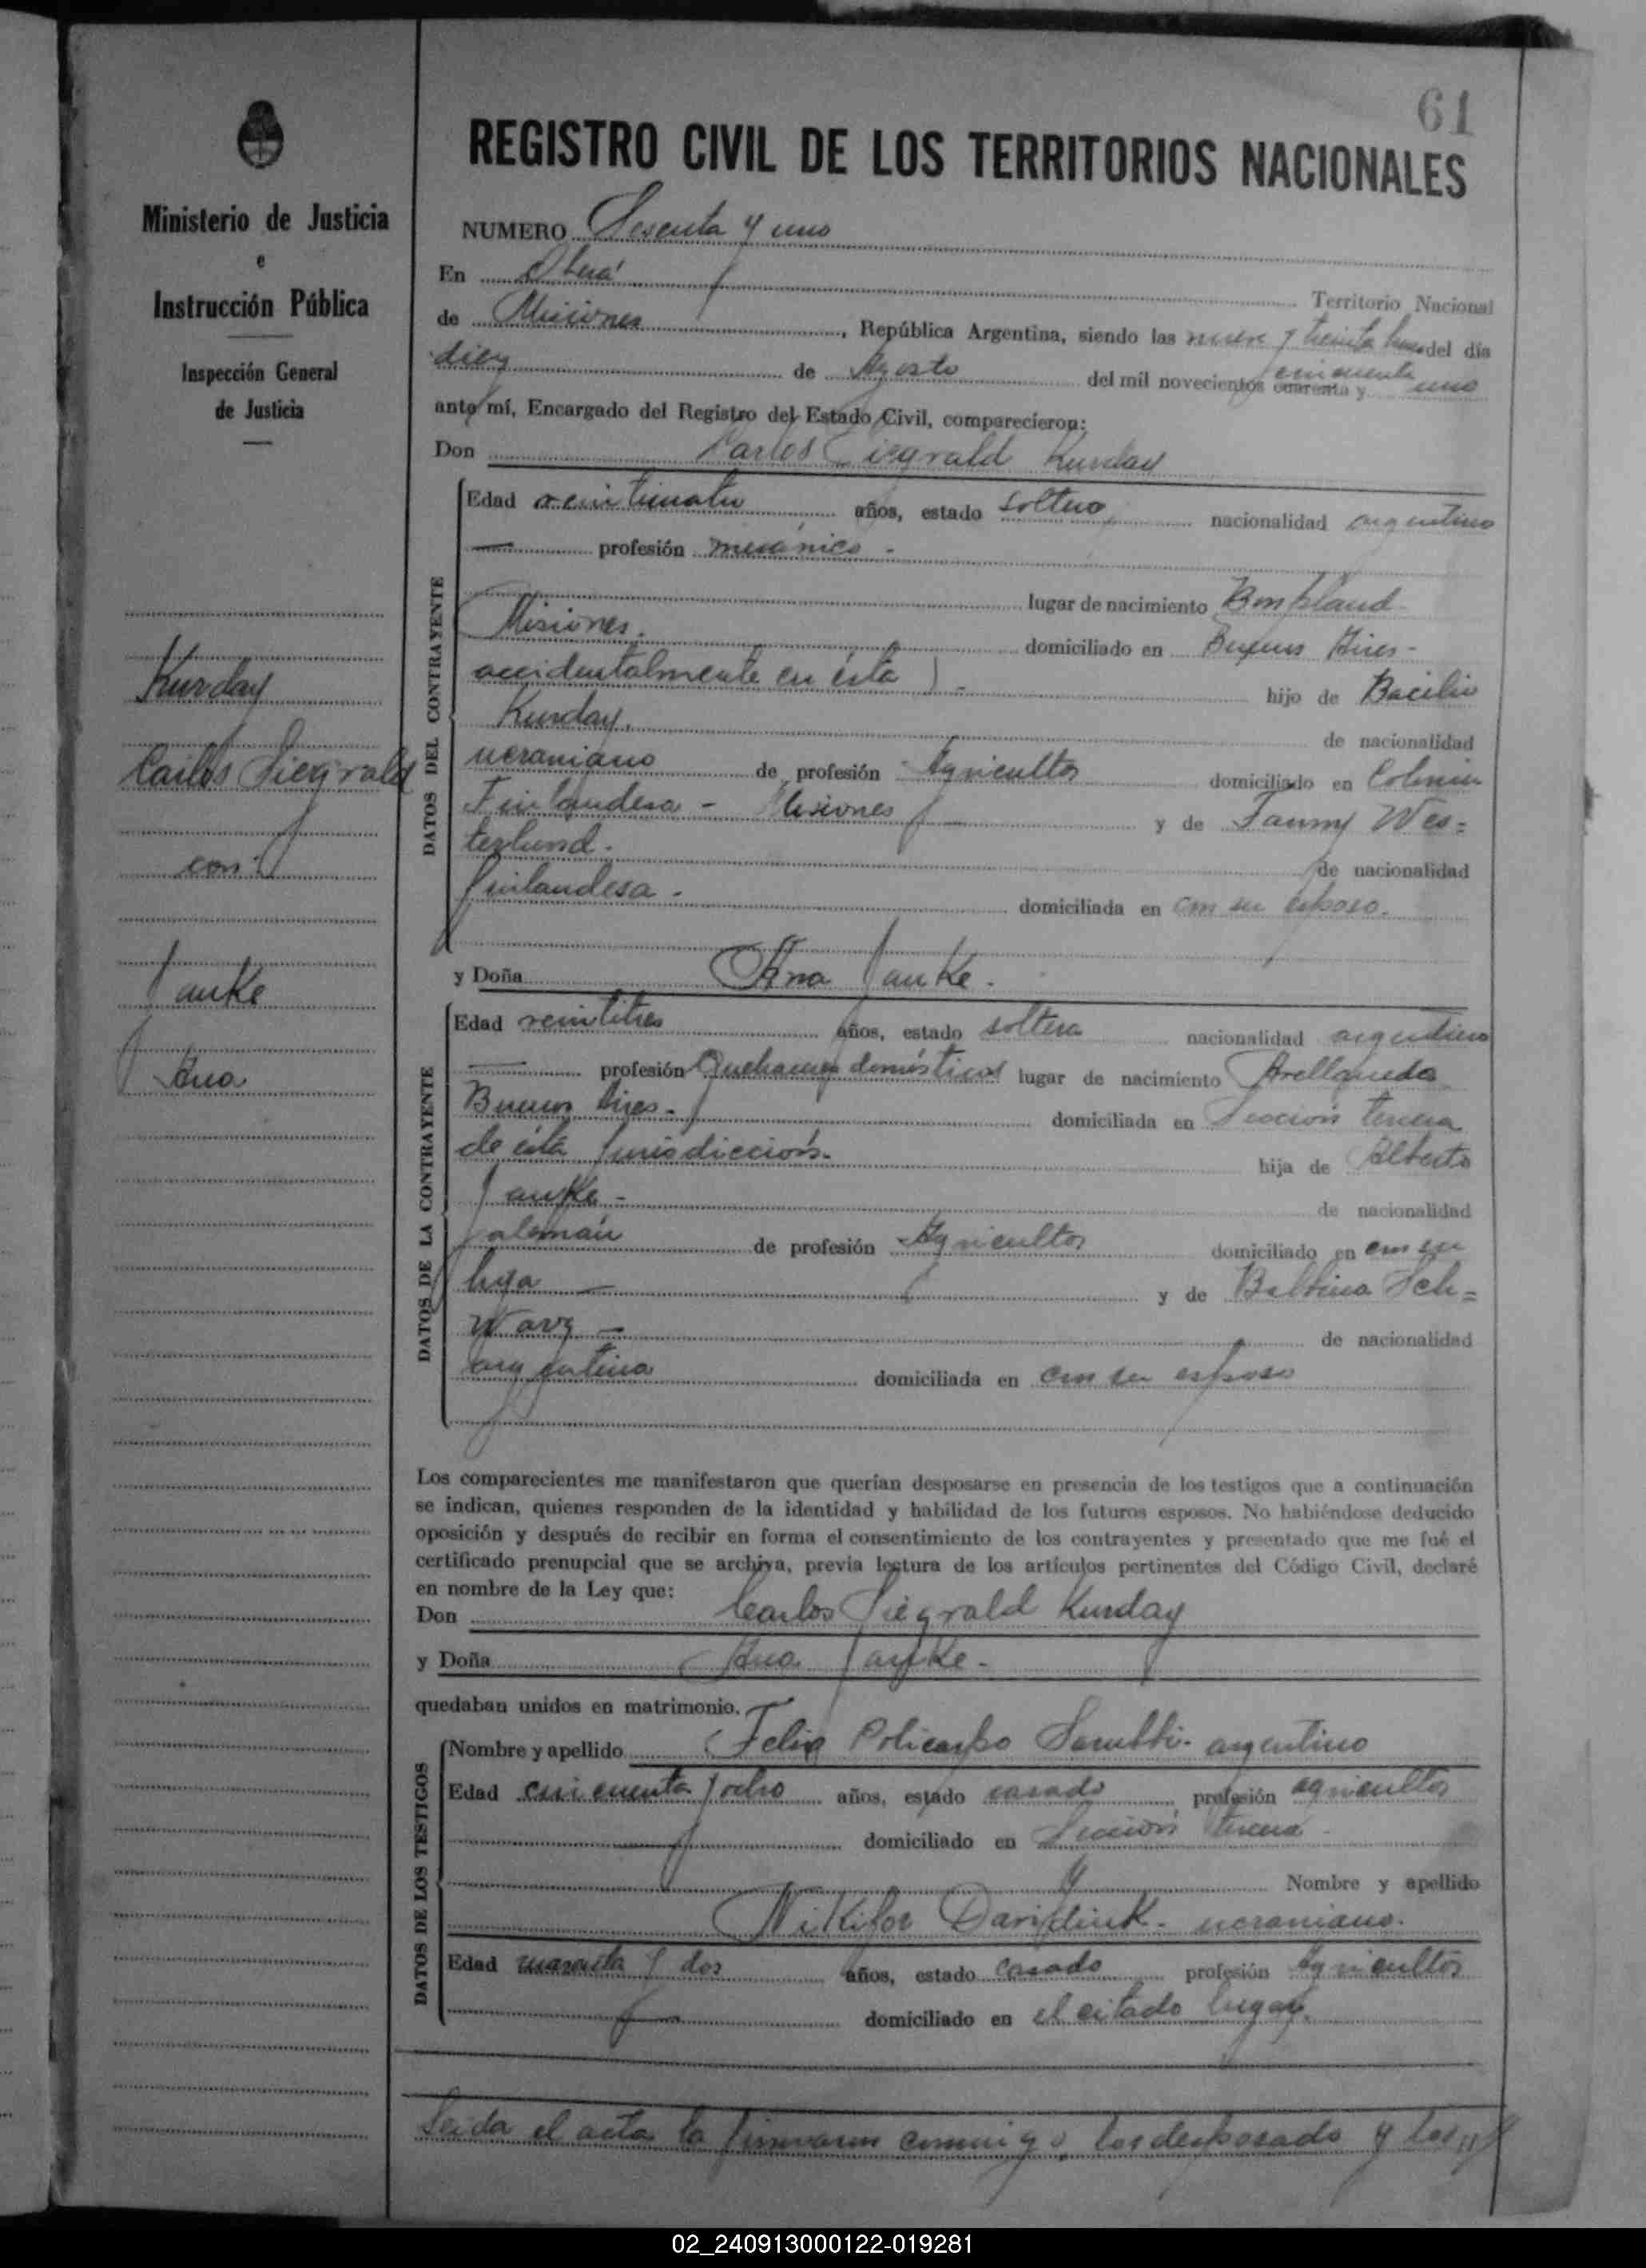 61
REGISTRO CIVIL DE LOS TERRITORIOS NACIONALES
Ministerio de Justicia
e
Instrucción Pública
Inspección General
de Justicia
NUMERO Sesenta y uno
En Oberá Territorio Nacional
de Misiones, República Argentina, siendo las nueve y treinta horas del día
diez de Agosto del mil novecientos cuarenta y cincuenta uno
ante mí, Encargado del Registro del Estado Civil, comparecieron:
Don Carlos Siegrald Kurday
DATOS DEL CONTRAYENTE
Edad veinticuatro años, estado soltero nacionalidad argentino
profesión mecánico -
lugar de nacimiento Bonpland
Misiones. domiciliado en Buenos Aires -
accidentalmente en ésta ) - hijo de Bacilio
Kurday. de nacionalidad
ucraniano de profesión Agricultor domiciliado en Colonia
Finlandesa - Misiones y de Fanny Wes=
terlund. de nacionalidad
finlandesa - domiciliada en con su esposo.
y Doña Ana Janke -
DATOS DE LA CONTRAYENTE
Edad veintitres años, estado soltera nacionalidad argentina
profesión Quehaceres domésticos lugar de nacimiento Avellaneda
Buenos Aires - domiciliada en Sección tercera
de ésta jurisdicción. hija de Alberto
Janke - de nacionalidad
alemán de profesión Agricultor domiciliado en con su
hija — y de Balbina Sch=
warz — de nacionalidad
argentina domiciliada en con su esposo
Los comparecientes me manifestaron que querían desposarse en presencia de los testigos que a continuación
se indican, quienes responden de la identidad y habilidad de los futuros esposos. No habiéndose deducido
oposición y después de recibir en forma el consentimiento de los contrayentes y presentado que me fué el
certificado prenupcial que se archiva, previa lectura de los artículos pertinentes del Código Civil, declaré
en nombre de la Ley que:
Don Carlos Siegrald Kurday
y Doña Ana Janke -
quedaban unidos en matrimonio.
DATOS DE LOS TESTIGOS
Nombre y apellido Felix Policarpo argentino
Edad cincuenta y ocho años, estado casado profesión agricultor
domiciliado en Sección tercera
y Nombre y apellido
Nikifor ucraniano.
Edad cuarenta y dos años, estado casado profesión Agricultor
domiciliado en el citado lugar.
Leida el acta la firmaron conmigo, los desposado y los
Kurday
Carlos Siegrald
con:
Janke
Ana
02_240913000122-019281